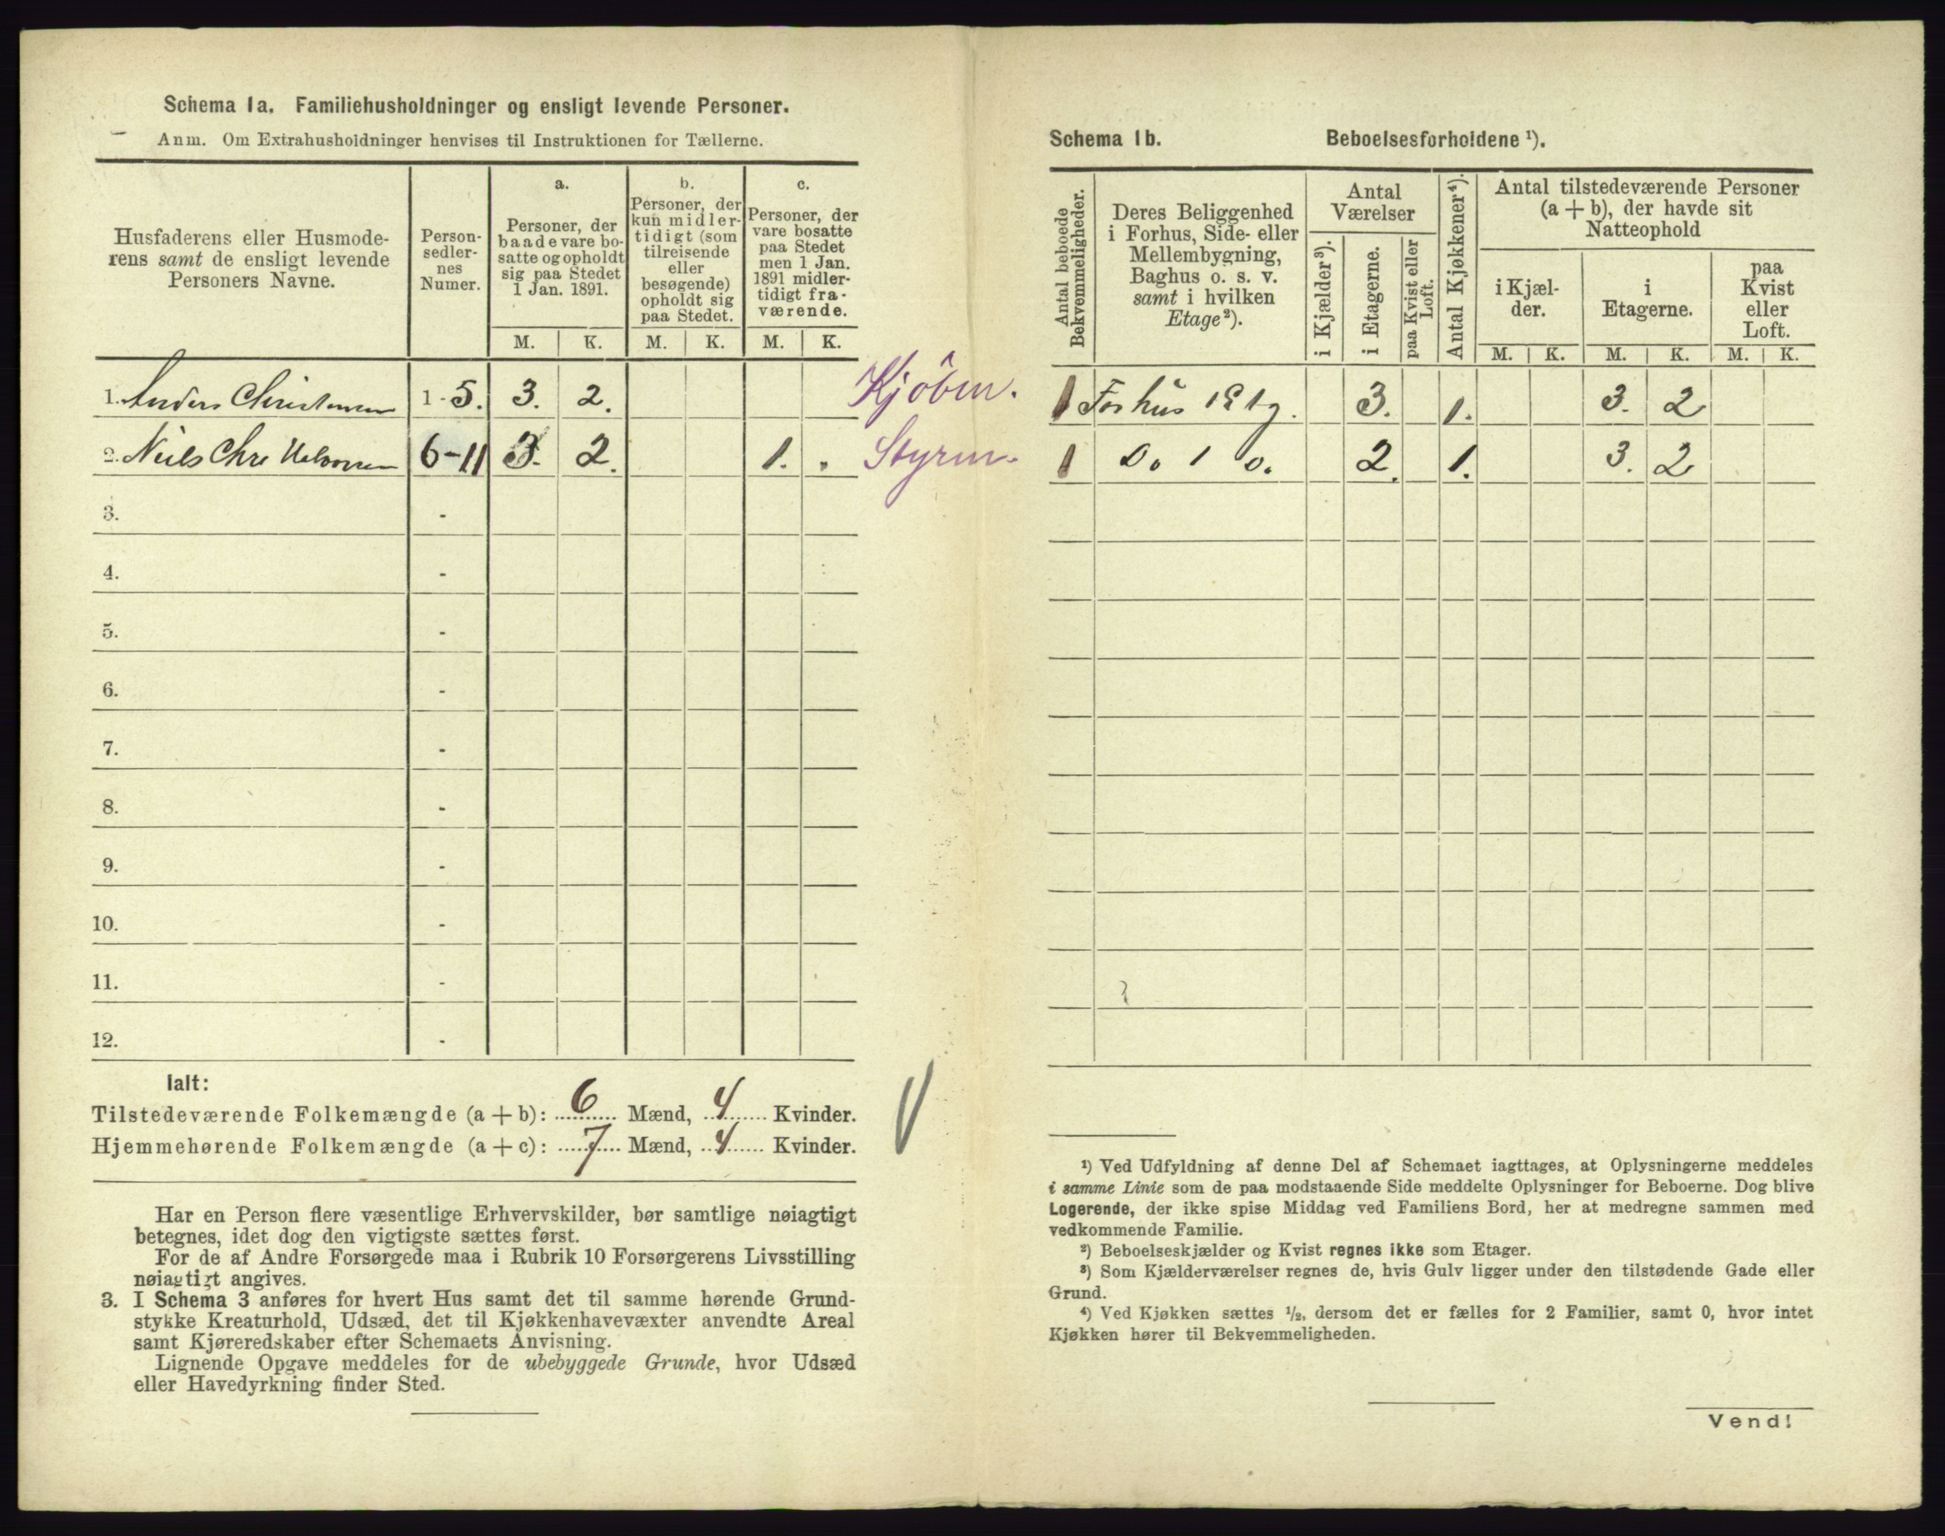 Schema 1a. Familiehusholdninger og ensligt levende Personer.
Anm. Om Extrahusholdninger henvises til Instruktionen for Tællerne.
Husfaderens eller Husmode-
rens samt de ensligt levende
Personers Navne.
Person-
sedler-
nes
Numer.
a.
Personer, der
baade vare bo-
satte og opholdt
sig paa Stedet
1 Jan. 1891.
b.
Personer, der
kun midler-
tidigt (som
tilreisende
eller
besøgende)
opholdt sig
paa Stedet.
c.
Personer, der
vare bosatte
paa Stedet
men 1 Jan.
1891 midler-
tidigt fra-
værende.
M. K. M. K. M. K.
1. Anders Christensen 1-5. 3. 2. Kjöbm.
2. Niels Chr 6-11 3. 2. 1. . Styrm.
3. -
4. -
5. -
6. -
7. -
8. -
9. -
10. -
11. -
12. -
Ialt:
Tilstedeværende Folkemængde (a + b): 6 Mænd, 4 Kvinder.
Hjemmehørende Folkemængde (a + c): 7 Mænd, 4 Kvinder.
Har en Person flere væsentlige Erhvervskilder, bør samtlige nøiagtigt
betegnes, idet dog den vigtigste sættes først.
For de af Andre Forsørgede maa i Rubrik 10 Forsørgerens Livsstilling
nøiagtigt angives.
3. I Schema 3 anføres for hvert Hus samt det til samme hørende Grund-
stykke Kreaturhold, Udsæd, det til Kjøkkenhavevæxter anvendte Areal
samt Kjøreredskaber efter Schemaets Anvisning.
Lignende Opgave meddeles for de ubebyggede Grunde, hvor Udsæd
eller Havedyrkning finder Sted.
Schema 1b. Beboelsesforholdene ¹).
Antal beboede
Bekvemmeligheder.
Deres Beliggenhed
i Forhus, Side- eller
Mellembygning,
Baghus o. s. v.
samt i hvilken
Etage²).
Antal
Værelser
i Kjælder³).
i Etagerne.
paa Kvist eller
Loft.
Antal Kjøkkener⁴).
Antal tilstedeværende Personer
(a + b), der havde sit
Natteophold
i Kjæl-
der.
i
Etagerne.
paa
Kvist
eller
Loft.
M. K. M. K. M. K.
1 Forhus 1 Etg. 3. 1. 3. 2
1 Do 1 o. 2. 1. 3. 2
¹) Ved Udfyldning af denne Del af Schemaet iagttages, at Oplysningerne meddeles
i samme Linie som de paa modstaaende Side meddelte Oplysninger for Beboerne. Dog blive
Logerende, der ikke spise Middag ved Familiens Bord, her at medregne sammen med
vedkommende Familie.
²) Beboelseskjælder og Kvist regnes ikke som Etager.
³) Som Kjælderværelser regnes de, hvis Gulv ligger under den tilstødende Gade eller
Grund.
⁴) Ved Kjøkken sættes ½, dersom det er fælles for 2 Familier, samt 0, hvor intet
Kjøkken hører til Bekvemmeligheden.
Vend!